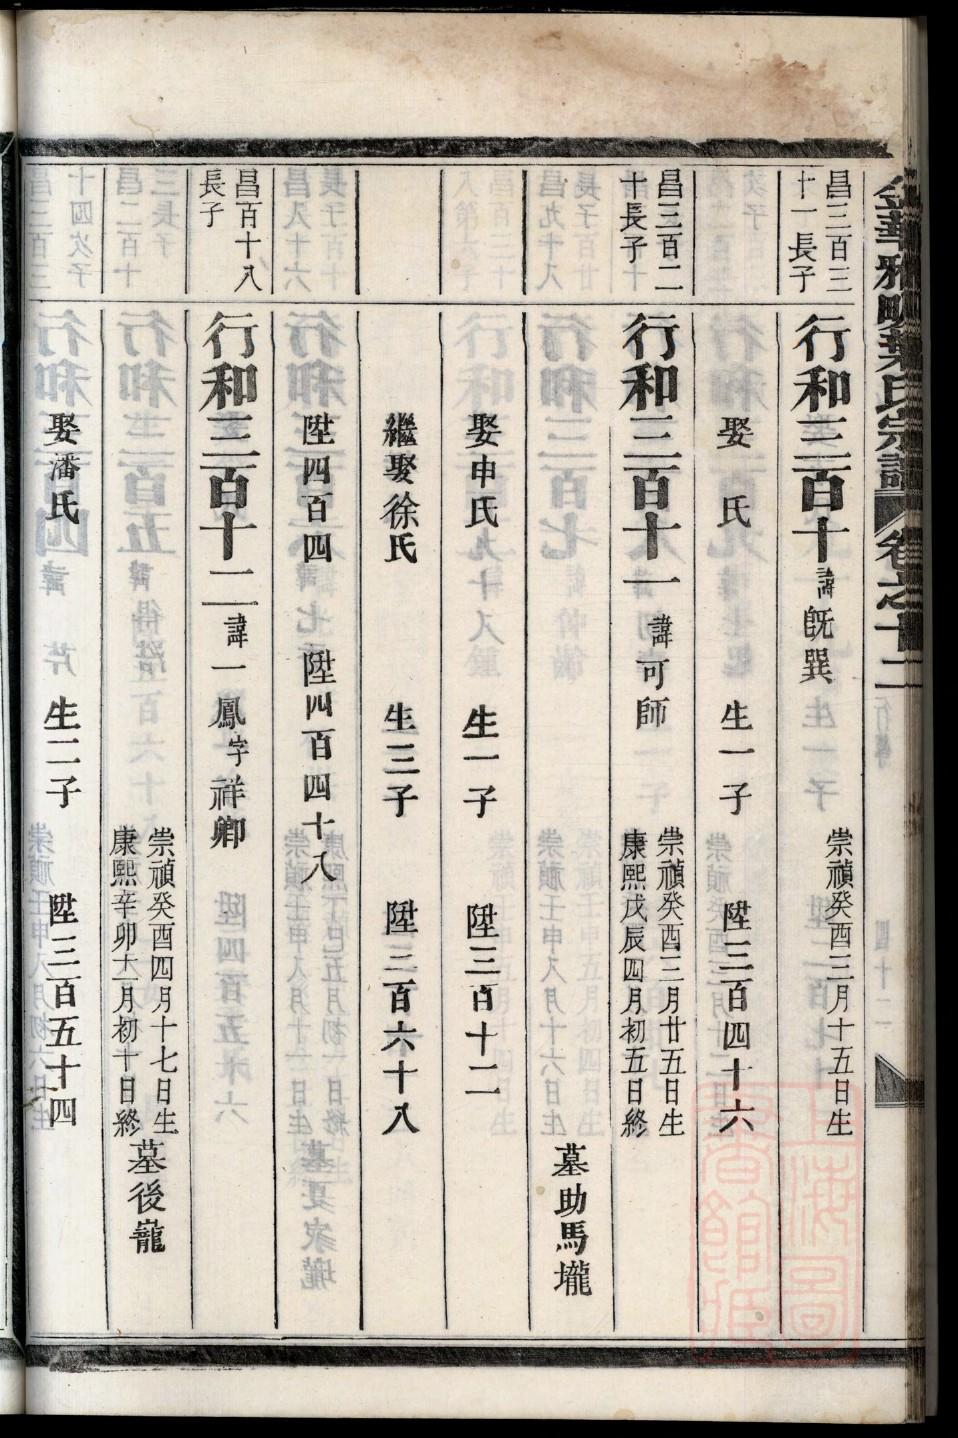 昌三百三
十一長子
行和三百十諱旣巽
崇禎癸酉三月十五日生
娶　氏　生一子　陞三百四十六
昌三百二
十長子
行和三百十一諱可師
崇禎癸酉三月廿五日生
康熙戊辰四月初五日終
墓助馬壠
娶申氏　生一子　陞三百十二
繼娶徐氏　生三子　陞三百六十八
陞四百四　陞四百四十八
昌百十八
長子
行和三百十二諱一鳳字祥卿
崇禎癸酉四月十七日生
康熙辛卯六月初十日終
墓後巃
娶潘氏　生二子　陞三百五十四